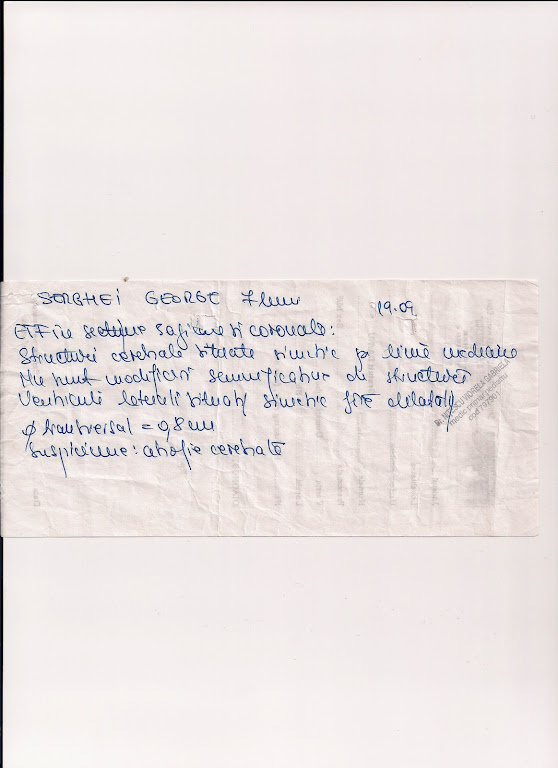 SERGHEI GEORGE 7 luni 19.09
ETF în secțiune sagitare și coronale:
Structuri cerebrale situate simetric pe linie mediane
Nu sunt modificări semnificative de structură
Ventriculi laterali situați simetric dilatați
φ transversal = 0,8 cm
Suspiciune: atrofie cerebrală